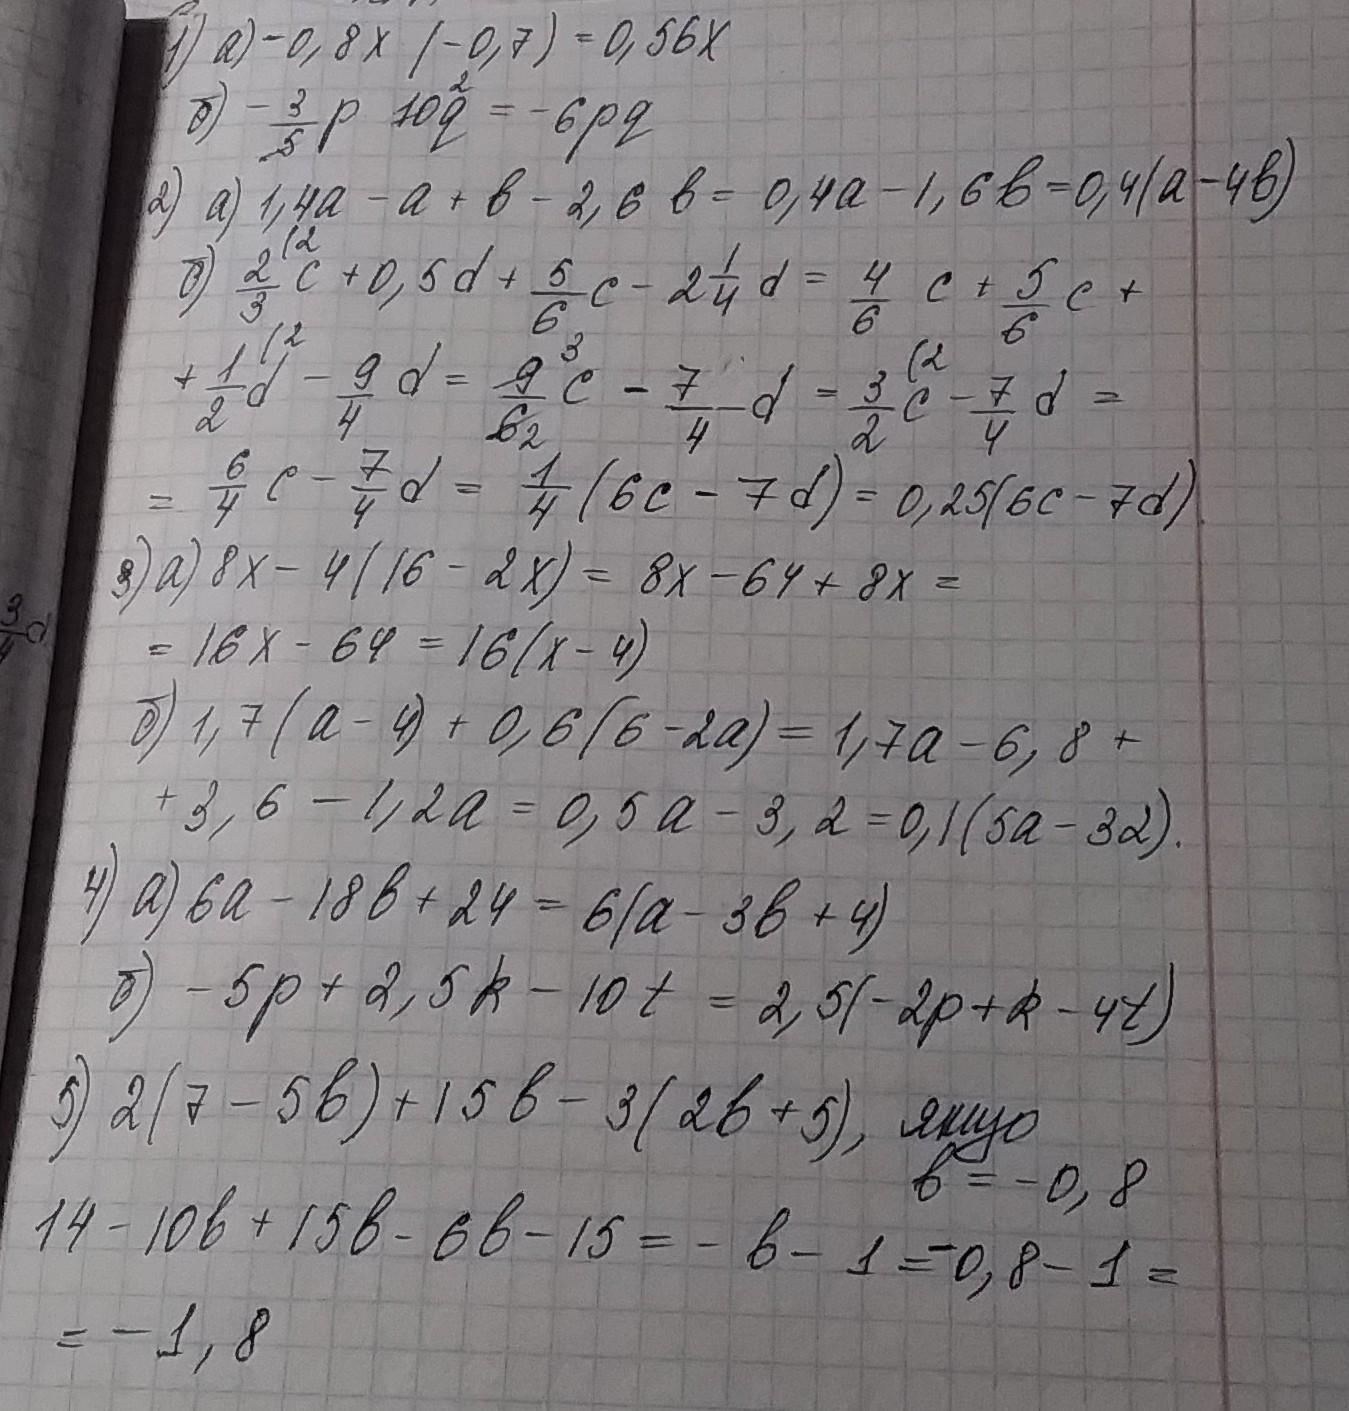 1) а) -0,8x (-0,7) = 0,56x
б) - 3/5 p 10q = -6pq
2) а) 1,4a - a + b - 2,6 b = 0,4a - 1,6b = 0,4(a - 4b)
б) 2/3 (2 c + 0,5d + 5/6 c - 2 1/4 d = 4/6 c + 5/6 c +
+ 1/2 (2 d - 9/4 d = 9 3/6 2 c - 7/4 d = 3/2 (2 c - 7/4 d =
= 6/4 c - 7/4 d = 1/4 (6c - 7d) = 0,25(6c - 7d)
3) а) 8x - 4(16 - 2x) = 8x - 64 + 8x =
= 16x - 64 = 16(x - 4)
б) 1,7(a - 4) + 0,6(6 - 2a) = 1,7a - 6,8 +
+ 3,6 - 1,2a = 0,5a - 3,2 = 0,1(5a - 32).
4) а) 6a - 18b + 24 = 6(a - 3b + 4)
б) -5p + 2,5k - 10t = 2,5(-2p + k - 4t)
5) 2(7 - 5b) + 15b - 3(2b + 5), якщо
b = -0,8
14 - 10b + 15b - 6b - 15 = - b - 1 = -0,8 - 1 =
= -1,8